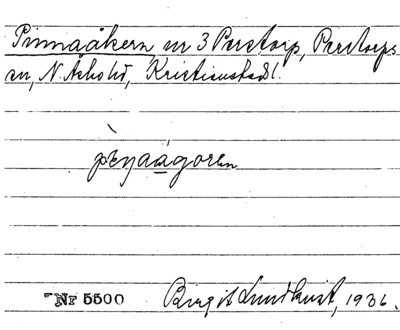 Pinnaåkern nr 3 Perstorp, Perstorps
sn, N. Åsbo hd, Kristianstads l.
Nr 5500 Birgit Lundkvist, 1936.